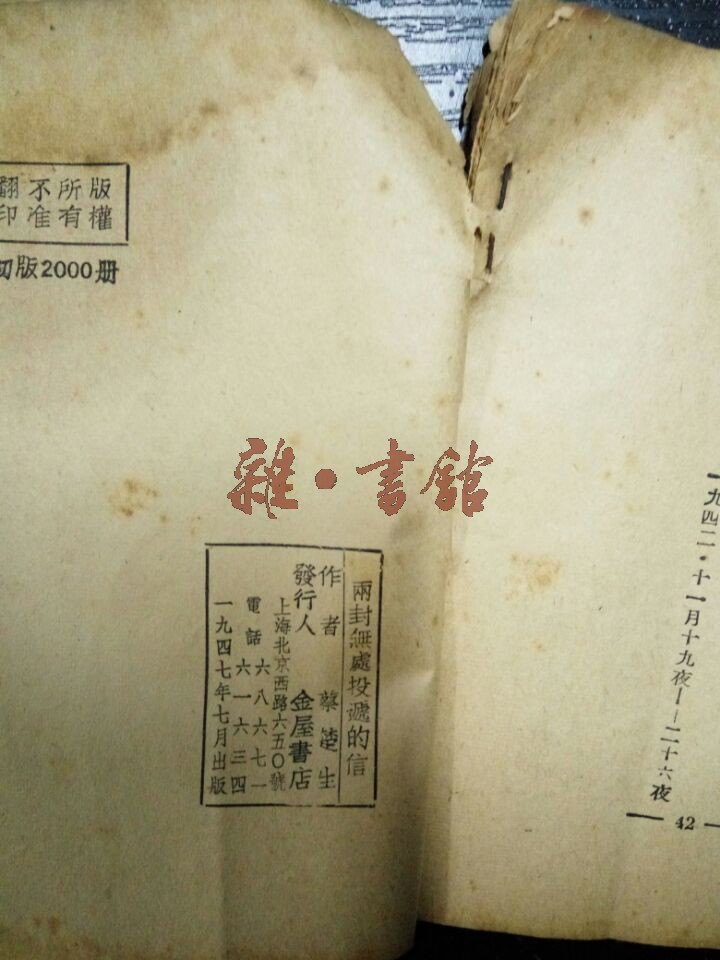 一九四二・十一月十九夜——二十六夜
— 42 —
版權
所有
不准
翻印
初版2000册
雜・書館
兩封無處投遞的信
作者 蔡楚生
發行人 金屋書店
上海北京西路六五〇號
電話 六八六七一
六一六三四
一九四七年七月出版